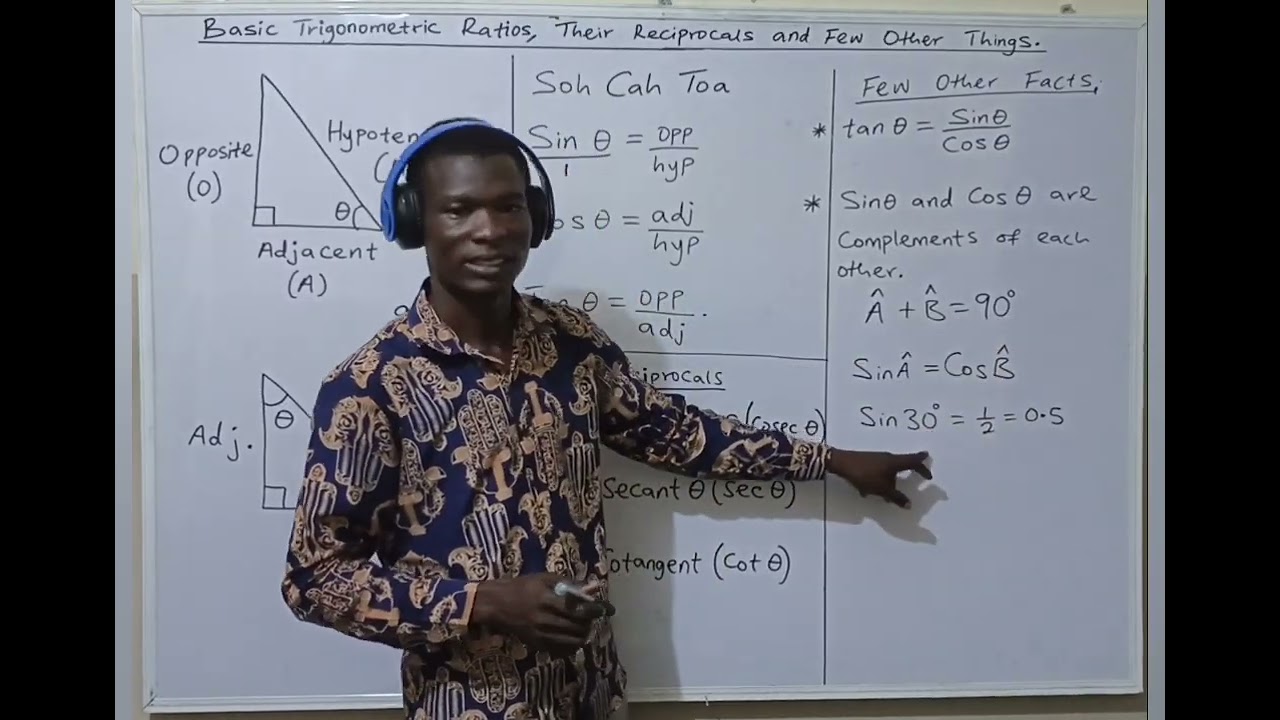 Basic Trigonometric Ratios, Their Reciprocals and Few Other Things.
Opposite
(O)
θ
Adjacent
(A)
Adj.
θ
Soh Cah Toa
Sin θ = opp/hyp
1
θ = adj/hyp
θ = opp/adj.
(Cosec θ)
Secant θ (Sec θ)
(Cot θ)
Few Other Facts,
* tan θ = Sinθ/Cosθ
* Sinθ and Cos θ are
Complements of each
other.
Â + B̂ = 90°
SinÂ = CosB̂
Sin 30° = 1/2 = 0.5